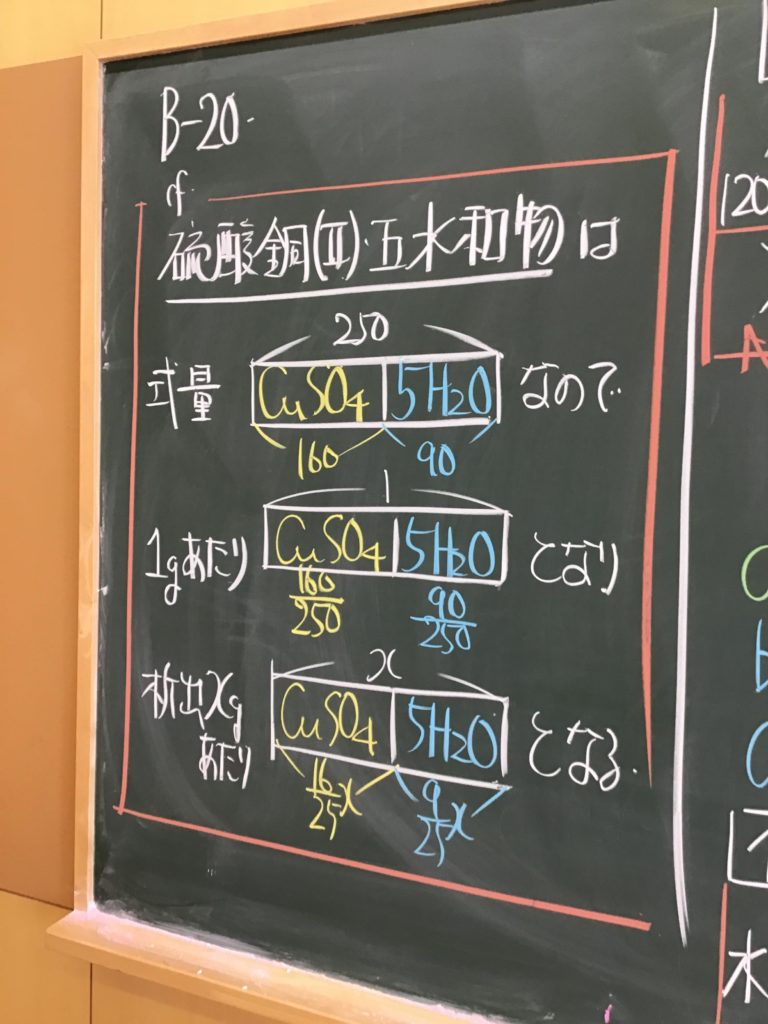 B-20.
cf.
硫酸銅(Ⅱ)・五水和物は
250
式量 CuSO4 5H2O なので
160 90
1
1gあたり CuSO4 5H2O となり
160/250 90/250
x
析出xg CuSO4 5H2O となる.
あたり
16/25x 9/25x
120
水